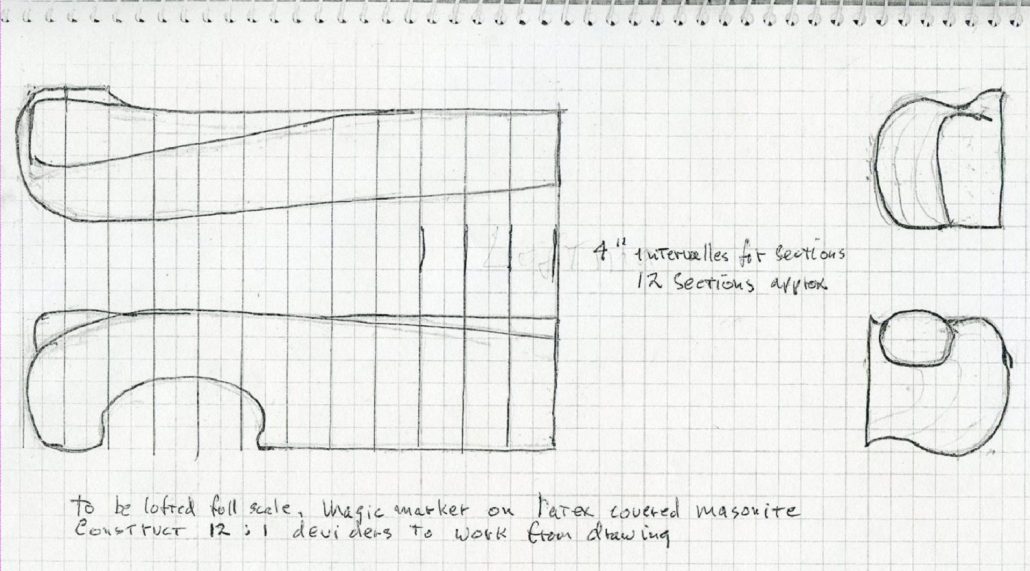 4" intervalles for sections
12 sections approx
to be lofted full scale, magic marker on Latex covered masonite
Construct 12:1 deviders to work from drawing